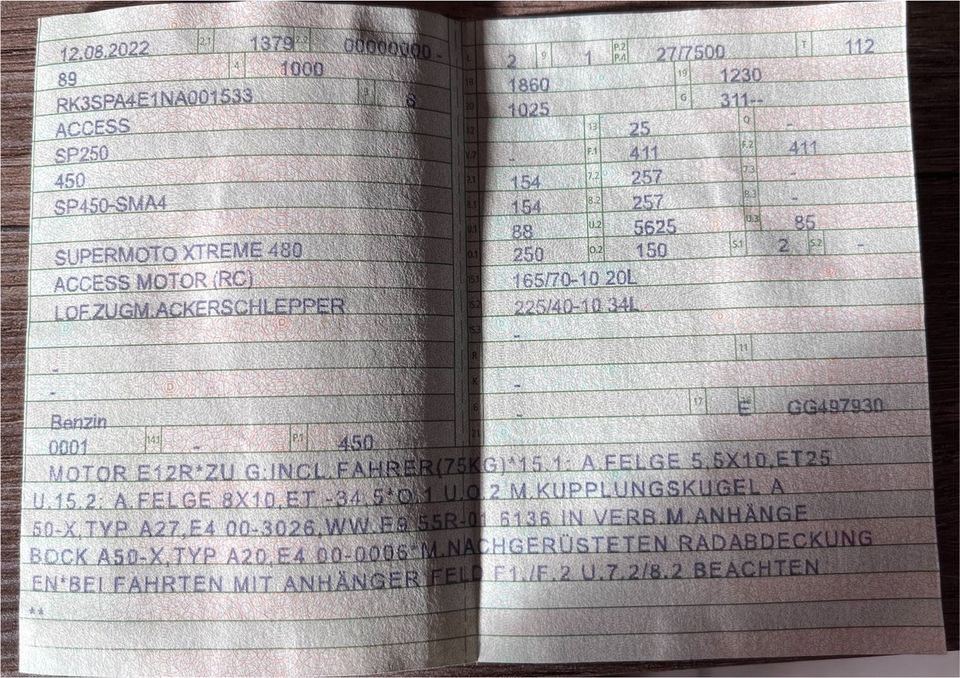 12.08.2022 2.1 1379 2.2 00000000 - L 2 9 1 P.2 P.4 27/7500 T 112
89 4 1000 18 1860 19 1230
RK3SPA4E1NA001533 3 6 20 1025 G 311--
ACCESS 12 - 13 25 Q -
SP250 V.7 - F.1 411 F.2 411
450 7.1 154 7.2 257 7.3 -
SP450-SMA4 8.1 154 8.2 257 8.3 -
U.1 88 U.2 5625 U.3 85
SUPERMOTO XTREME 480 O.1 250 O.2 150 S.1 2 S.2 -
ACCESS MOTOR (RC) 15.1 165/70-10 20L
LOF.ZUGM.ACKERSCHLEPPER 15.2 225/40-10 34L
15.3 -
- R 11
- K -
Benzin 6 - 17 E GG497930
0001 14.1 - P.1 450 21
MOTOR E12R*ZU G:INCL.FAHRER(75KG)*15.1: A.FELGE 5,5X10,ET25
U.15.2: A.FELGE 8X10,ET -34,5*O.1 U.O.2 M.KUPPLUNGSKUGEL A
50-X,TYP A27,E4 00-3026,WW.E9 55R-01 6136 IN VERB.M.ANHÄNGE
BOCK A50-X,TYP A20,E4 00-0006*M.NACHGERÜSTETEN RADABDECKUNG
EN*BEI FAHRTEN MIT ANHÄNGER FELD F1./F.2 U.7.2/8.2 BEACHTEN
**